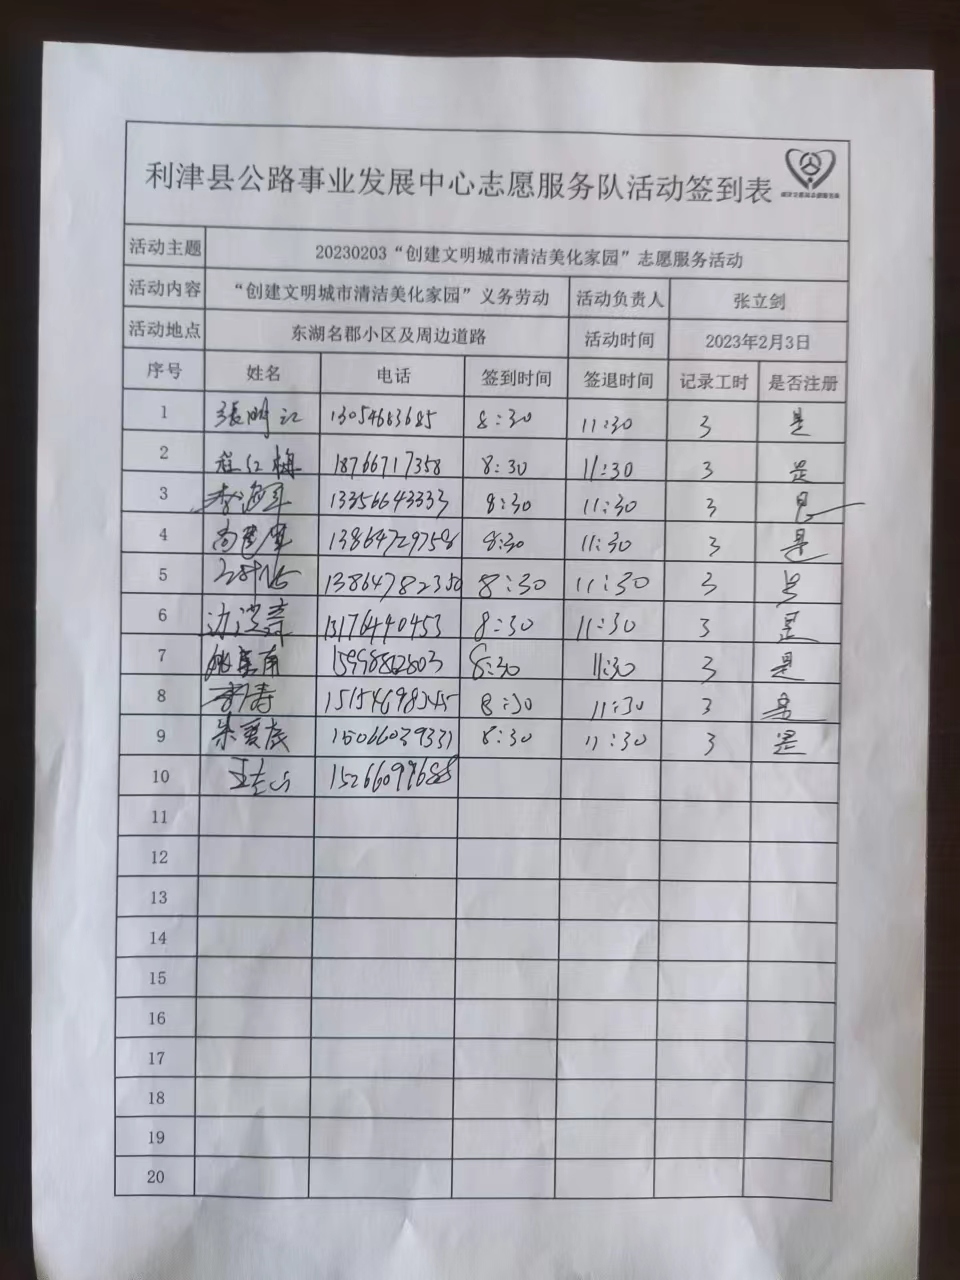 利津县公路事业发展中心志愿服务队活动签到表
活动主题 20230203“创建文明城市清洁美化家园”志愿服务活动
活动内容 “创建文明城市清洁美化家园”义务劳动 活动负责人 张立剑
活动地点 东湖名郡小区及周边道路 活动时间 2023年2月3日
序号 姓名 电话 签到时间 签退时间 记录工时 是否注册
1 張明江 13054663685 8:30 11:30 3 是
2 红梅 18766717358 8:30 11:30 3 是
3 13356643333 8:30 11:30 3 是
4 13864729758 8:30 11:30 3 是
5 13864782350 8:30 11:30 3 是
6 13176440453 8:30 11:30 3 是
7 8:30 11:30 3 是
8 8:30 11:30 3 是
9 15066039331 8:30 11:30 3 是
10 15266099688
11
12
13
14
15
16
17
18
19
20